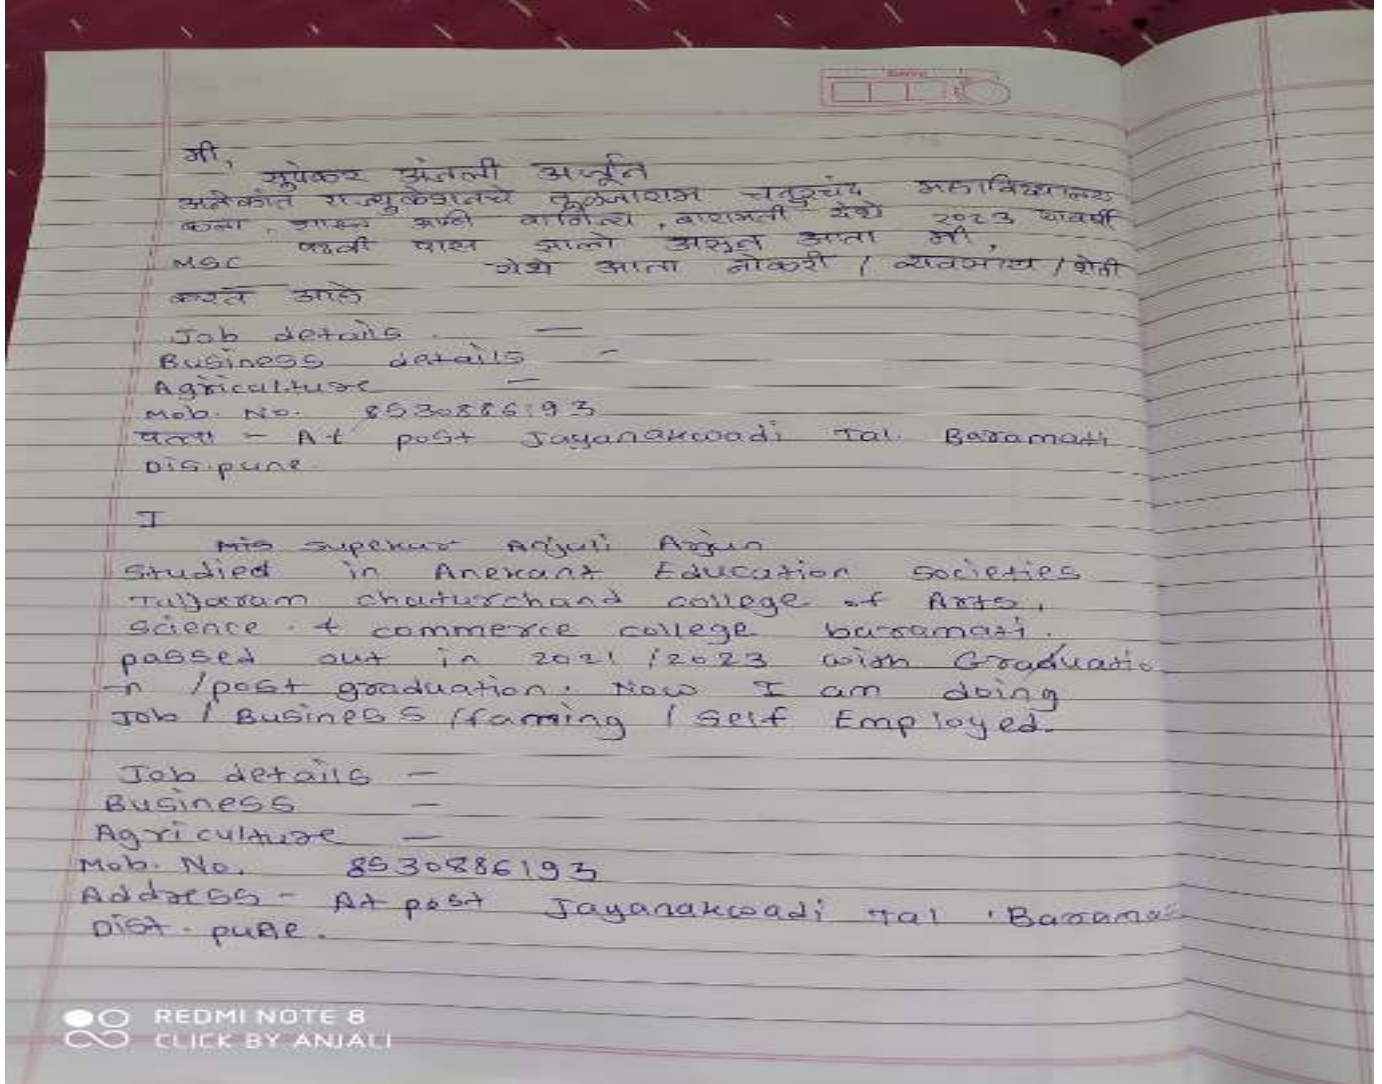 मी,
सुपेकर अंजली अर्जून
अनेकांत एज्युकेशनचे तुळजाराम चतुरचंद महाविद्यालय
कला, शास्त्र आणी वाणिज्य, बारामती येथे २०२३ यावर्षी
MSC पदवी पास झालो असुन आता मी,
येथे आता नोकरी / व्यवसाय / शेती
करत आहे
Job details —
Business details -
Agriculture —
Mob. No. 8530886193
पत्ता - At post Jayanakwadi Tal. Baramati
Dis.pune.
I
Mis Supekar Anjuli Arjun
Studied in Anekant Education Societies
Tuljaram chaturchand college of Arts,
Science. & commerce college baramati.
passed out in 2021/2023 with Graduatio
-n /post graduation. Now I am doing
Job / Business /farming / Self Employed.
Job details -
Business -
Agriculture -
Mob. No. 8530886193
Address - At post Jayanakwadi Tal. Baramati
Dist. pune.
REDMI NOTE 8
CLICK BY ANJALI